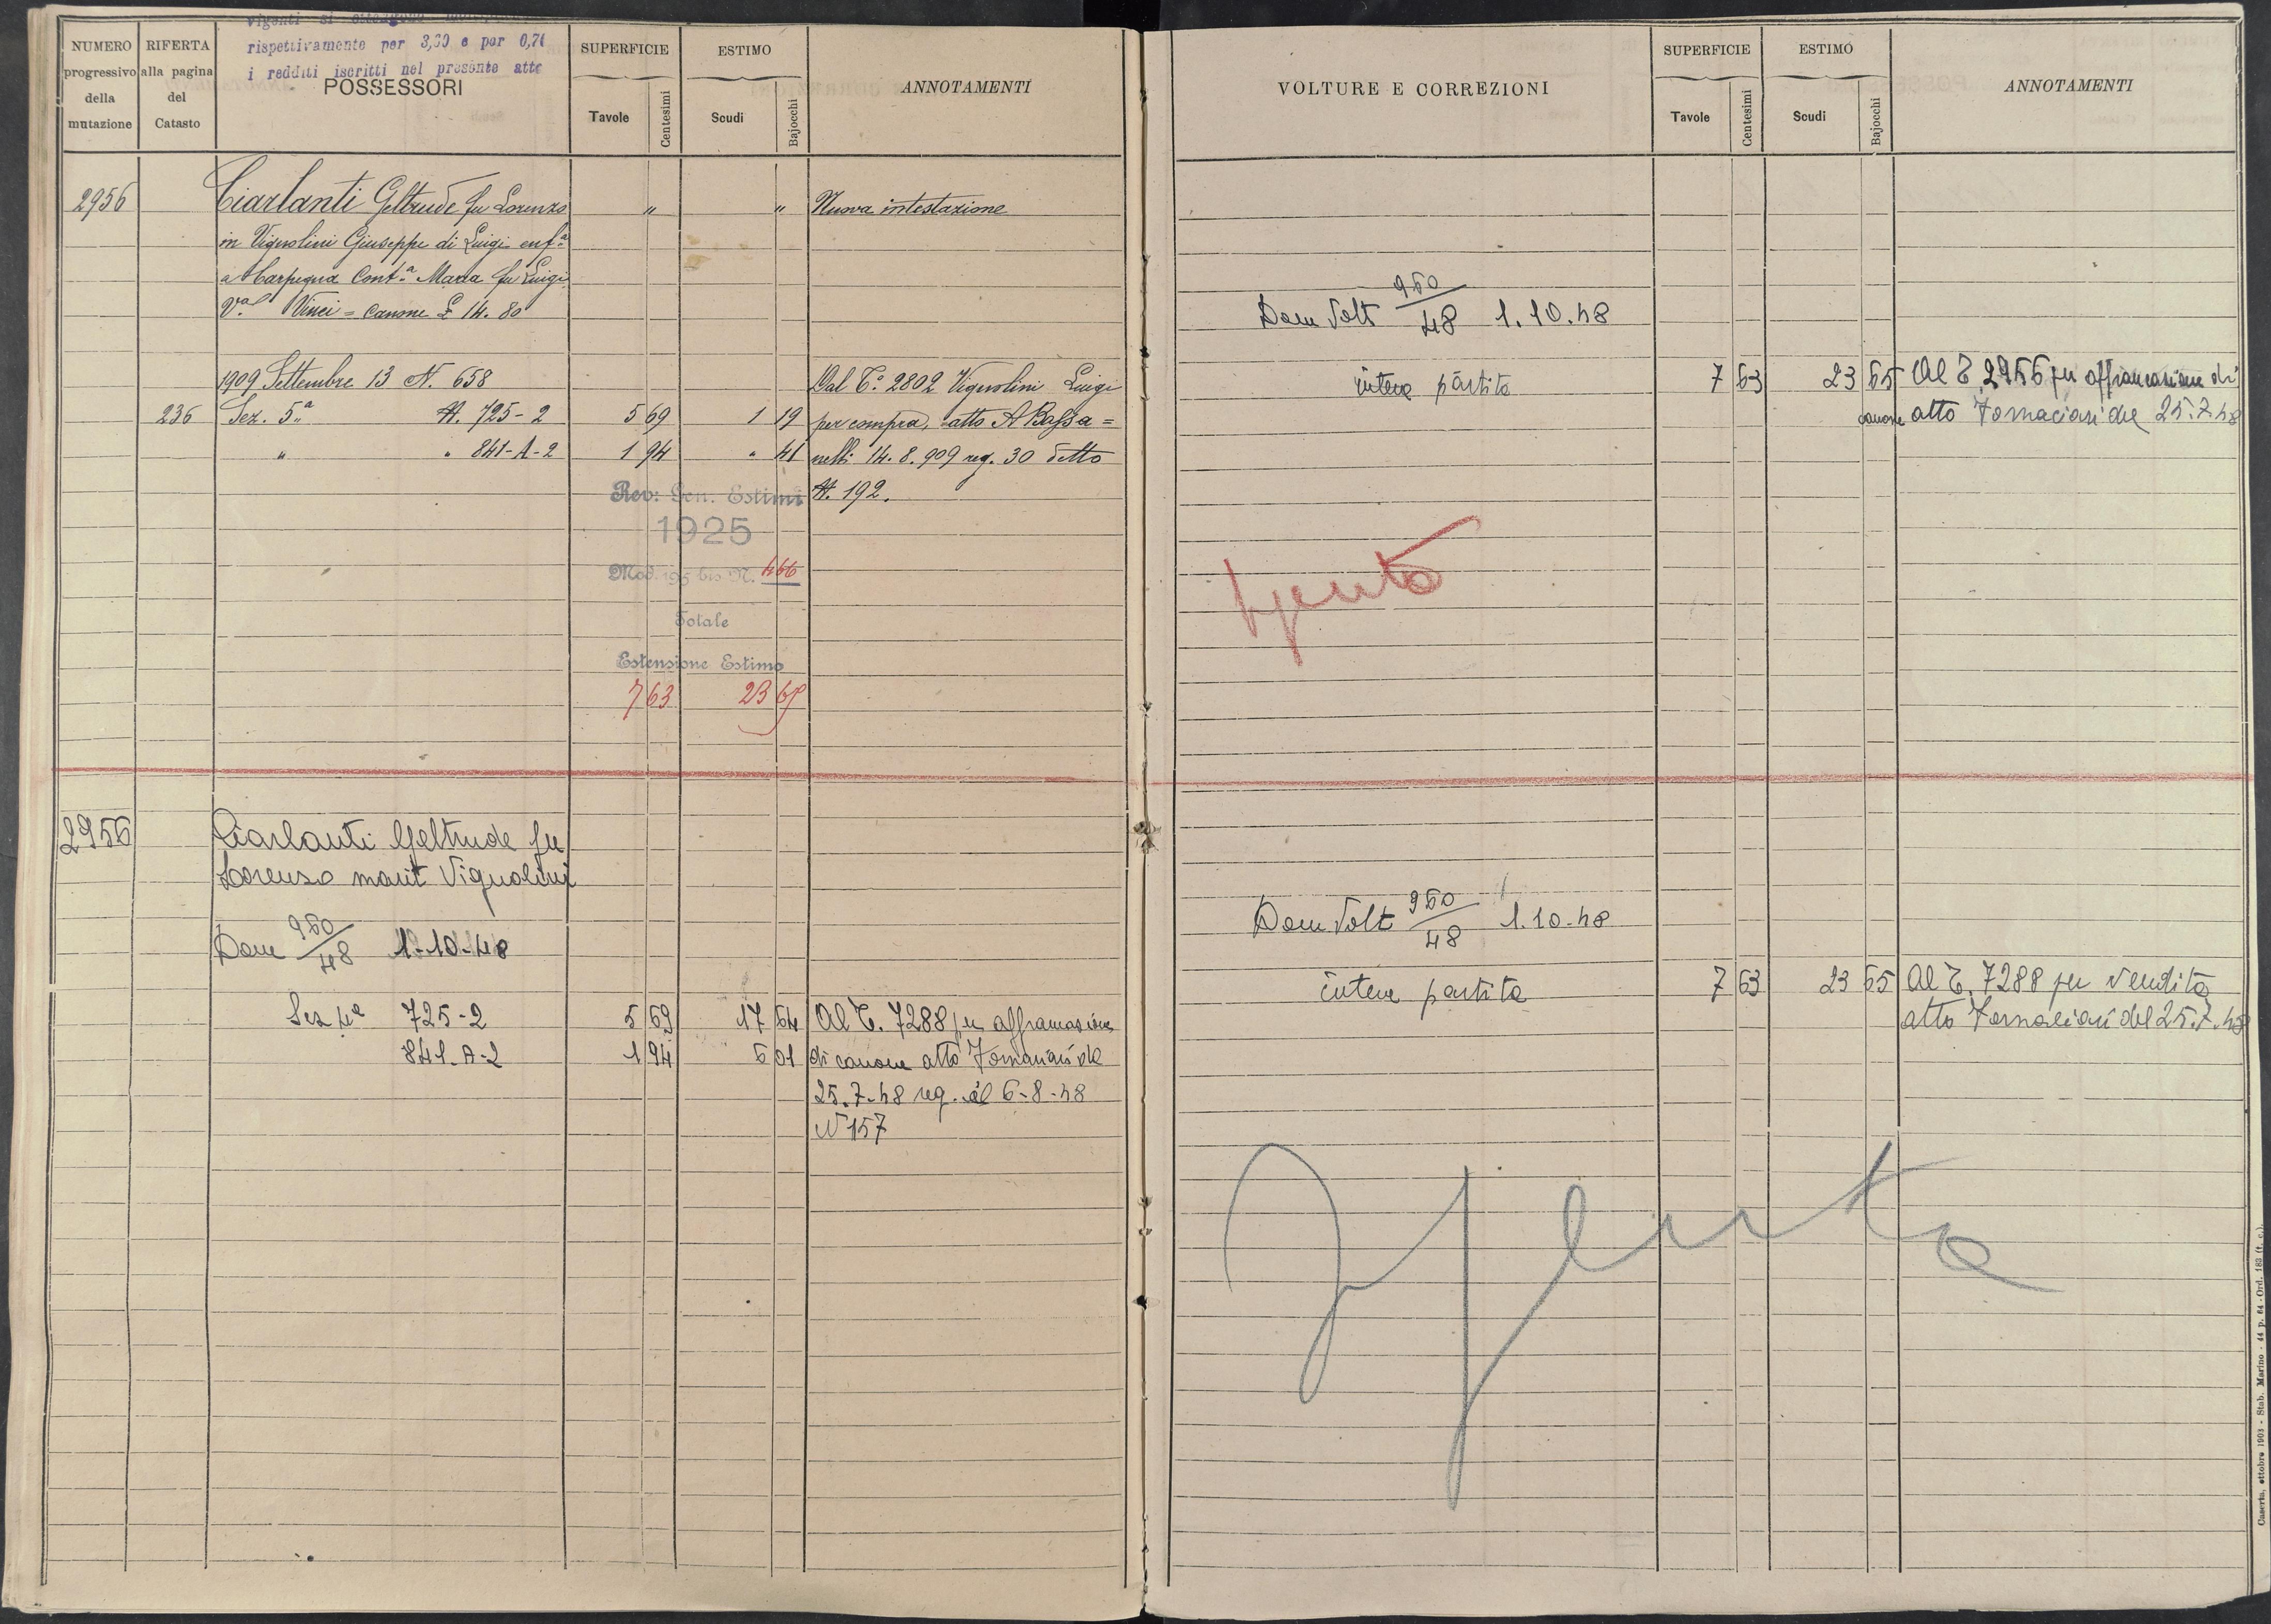 vigenti si
rispettivamente per 3,30 e per 0,70
i redditi iscritti nel presente atto
NUMERO progressivo della mutazione
RIFERTA alla pagina del Catasto
POSSESSORI
SUPERFICIE
Tavole
Centesimi
ESTIMO
Scudi
Bajocchi
ANNOTAMENTI
2956 Ciarlanti Geltrude fu Lorenzo " " Nuova intestazione
in Vignolini Giuseppe di Luigi enf.a
a Carpegna Cont.a Maria fu Luigi
V.a Vinci = canone £ 14.80
1909 Settembre 13 N. 658 Dal T.o 2802 Vignolini Luigi
236 Sez. 5.a N. 725-2 5 69 1 19 per compra, atto A Bassa=
" " 841-A-2 1 94 " 41 nelli 14.8.909 reg. 30 detto
N. 192.
Rev: Gen. Estimi
1925
Mod. 195 bis N. 466
Totale
Estensione Estimo
7 63 23 65
2956 Ciarlanti Geltrude fu
Lorenzo marit Vignolini
Dom 950/48 1-10-48
Sez 725-2 5 69 17 64 Al T. 7288 per affrancazione
841-A-2 1 94 6 01 di canone atto Fornaciari del
25.7.48 reg. il 6-8-48
N 157
VOLTURE E CORREZIONI
SUPERFICIE
Tavole
Centesimi
ESTIMO
Scudi
Bajocchi
ANNOTAMENTI
Dom Volt 950/48 1.10.48
intera partita 7 63 23 65 Al T. 2956 per affrancazione di
canone atto Fornaciari del 25.7.48
Spenta
Dom Volt 950/48 1.10.48
intera partita 7 63 23 65 Al T. 7288 per vendita
atto Fornaciari del 25.7.48
Spenta
Caserta, ottobre 1903 - Stab. Marino - 44 p. 64 - Ord. 183 (t. c.).